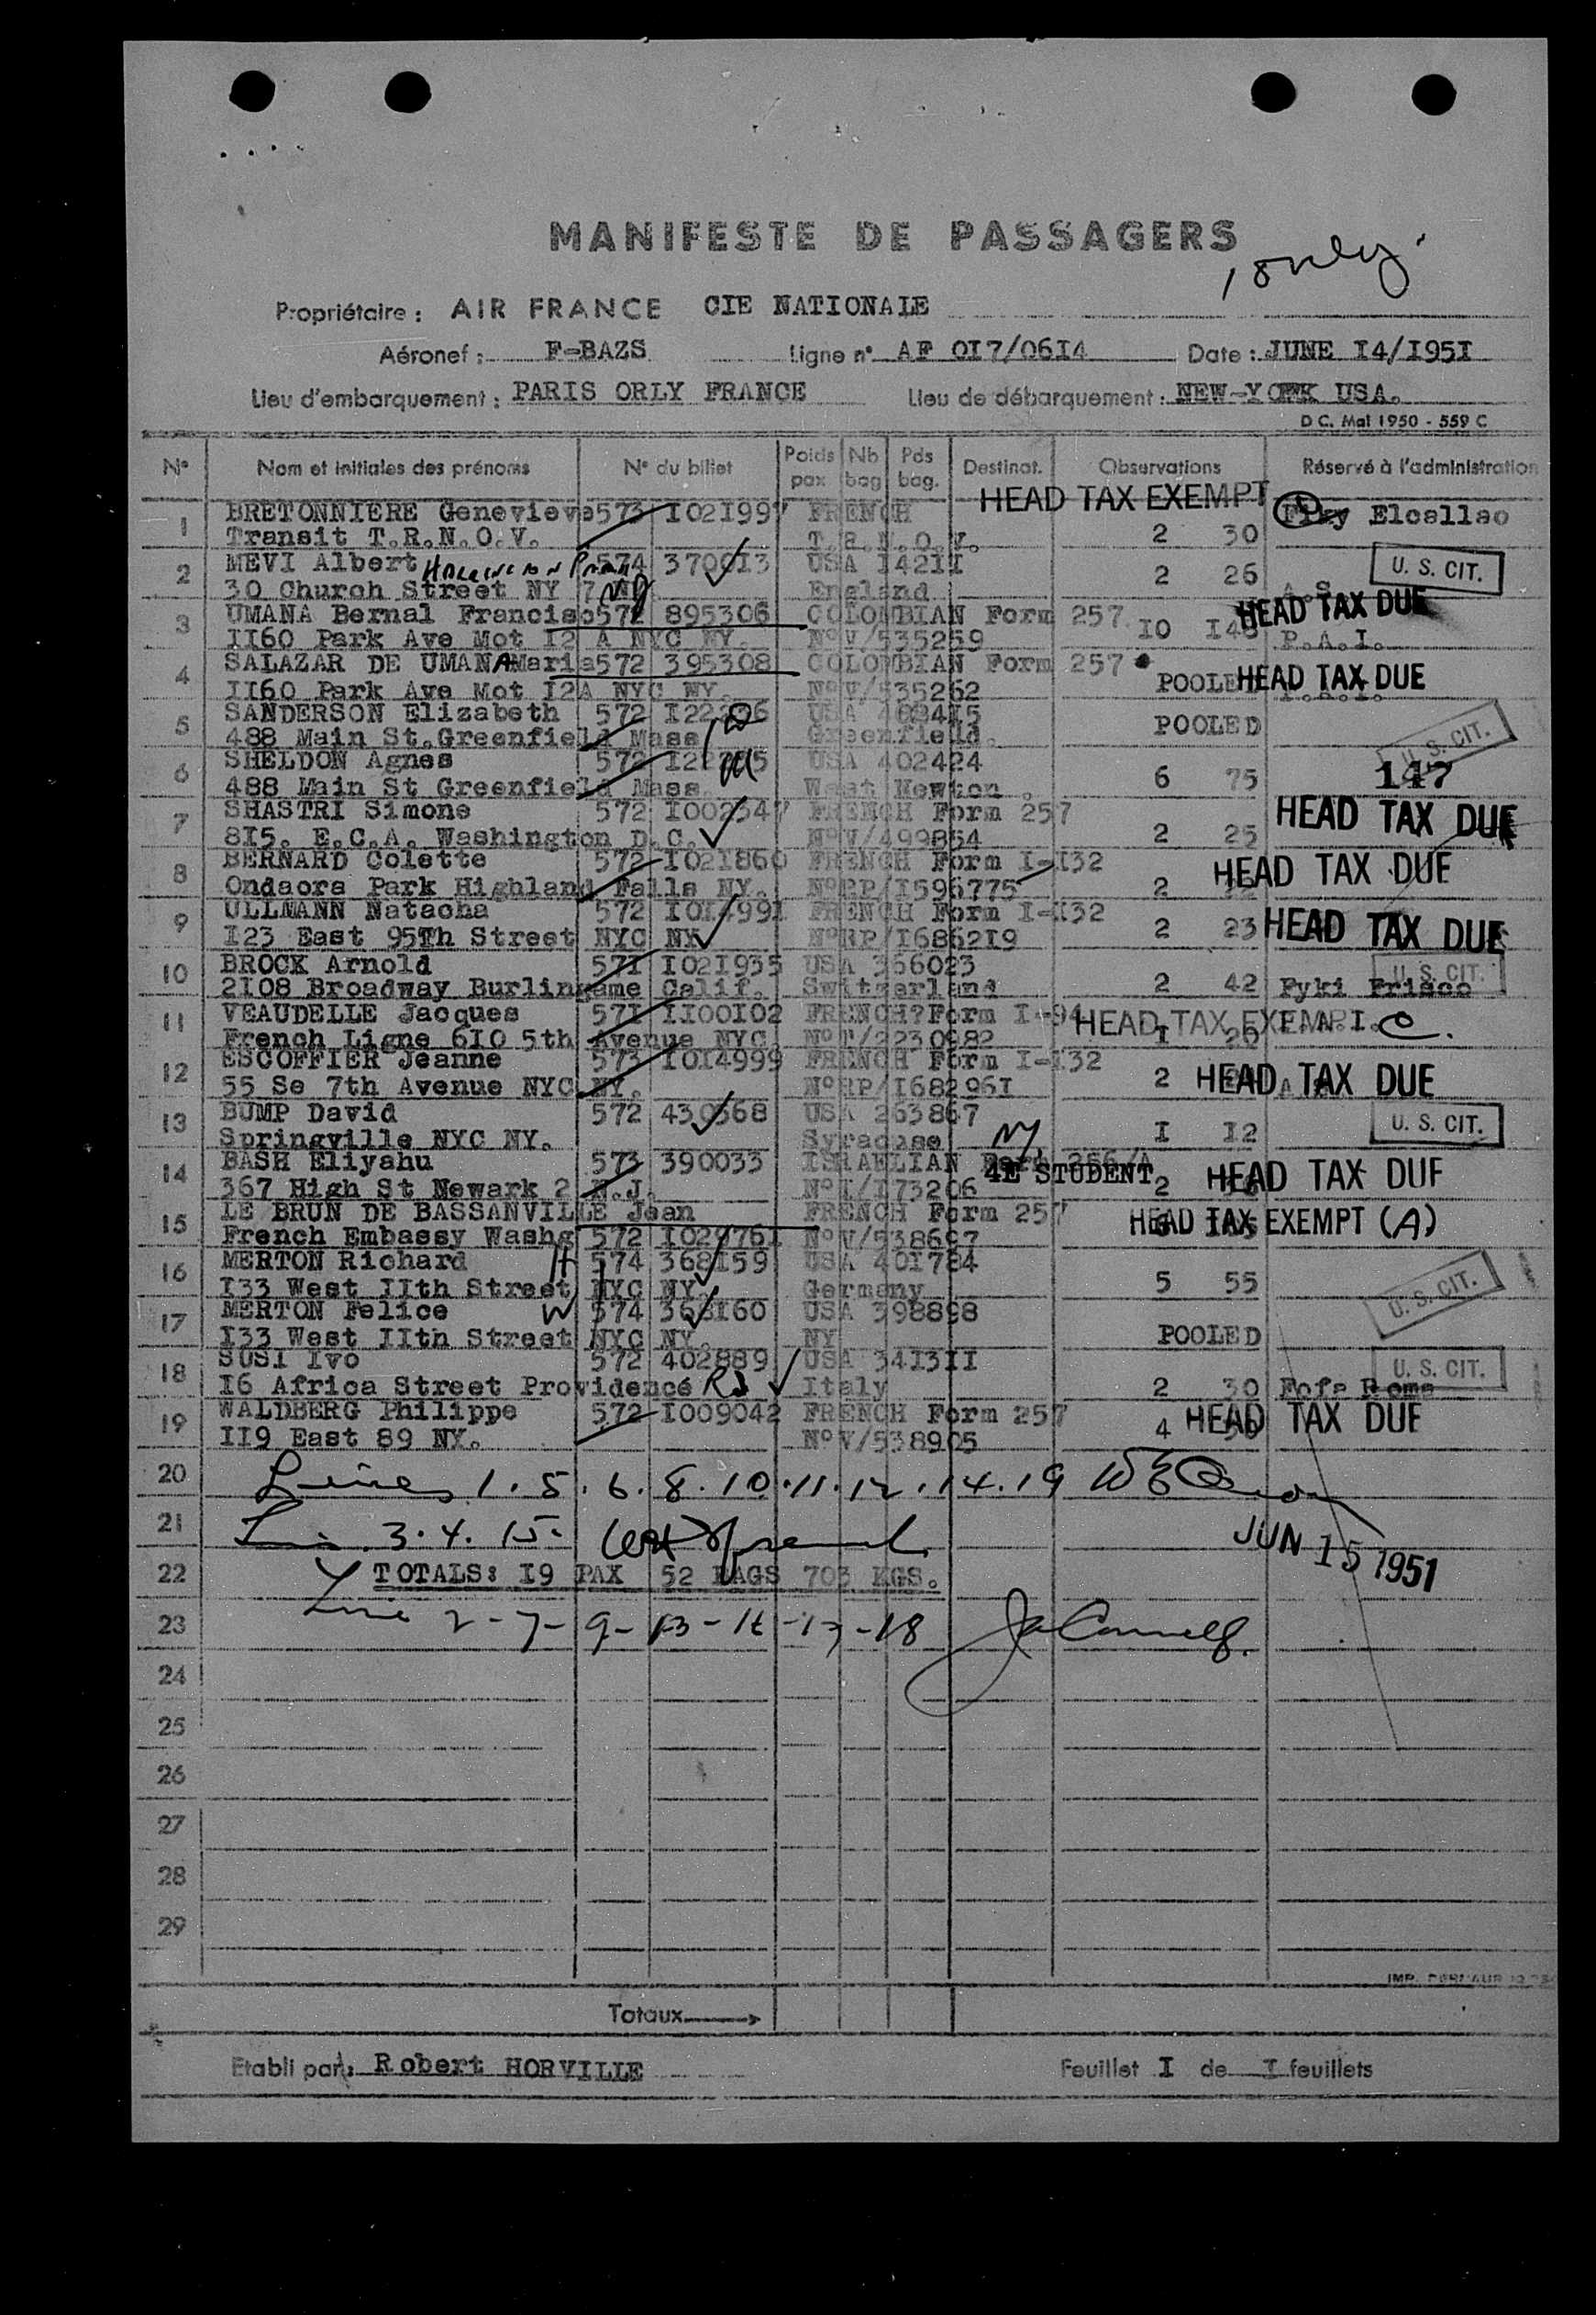 MANIFESTE DE PASSAGERS
Propriétaire : AIR FRANCE CIE NATIONALE
Aéronef : F-BAZS Ligne n° AF OI7/06I4 Date : JUNE I4/I95I
Lieu d'embarquement : PARIS ORLY FRANCE Lieu de débarquement : NEW-YORK USA.
D C. Mat 1950 - 559 C
N° Nom et initiales des prénoms N° du billet Poids pax Nb bag Pds bag. Destinat. Observations Réservé à l'administration
HEAD TAX EXEMPT
1 BRETONNIERE Genevieve 573 I02I997 FRENCH Elcallao
Transit T.R.N.O.V. T.R.N.O.V. 2 30
2 MEVI Albert 574 370013 USA I42II U. S. CIT.
30 Church Street NY 7 NY England 2 26
3 UMANA Bernal Francisco 572 895306 COLOMBIAN Form 257 HEAD TAX DUE
II60 Park Ave Mot I2 A NYC NY. N°V/535259 IO P.A.I.
4 SALAZAR DE UMANA Maria 572 395308 COLOMBIAN Form 257
II60 Park Ave Mot I2A NYC NY. N°V/535262 POOLED HEAD TAX DUE
5 SANDERSON Elizabeth 572 USA
488 Main St.Greenfield Mass Greenfield. POOLED U. S. CIT.
6 SHELDON Agnes 572 USA 402424
488 Main St Greenfield Mass West Newton. 6 75 147
7 SHASTRI Simone 572 I002347 FRENCH Form 257 HEAD TAX DUE
8I5. E.C.A. Washington D.C. N°V/499864 2 25
8 BERNARD Colette 572 I02I860 FRENCH Form I-I32 HEAD TAX DUE
Ondaora Park Highland Falls NY. N°RP/I596775 2
9 ULLMANN Natacha 572 I0I499I FRENCH Form I-I32
I23 East 95Th Street NYC NY N°RP/I6862I9 2 23 HEAD TAX DUE
10 BROCK Arnold 571 I02I935 USA 366023 U. S. CIT.
2I08 Broadway Burlingame Calif. Switzerland 2 42 Pyki Frisco
11 VEAUDELLE Jacques 571 II00I02 FRENCH?Form I-94 HEAD TAX EXEMPT
French Ligne 6I0 5th Avenue NYC N°T/2230982 I
12 ESCOFFIER Jeanne 573 I0I4999 FRENCH Form I-I32
55 Se 7th Avenue NYC NY. N°RP/I68296I 2 HEAD TAX DUE
13 BUMP David 572 430368 USA 263867 U. S. CIT.
Springville NYC NY. Syracuse NY I I2
14 BASH Eliyahu 573 390033 ISRAELIAN
367 High St Newark 2 N.J. N°I/I73206 4E STUDENT 2 HEAD TAX DUE
15 LE BRUN DE BASSANVILLE Jean FRENCH Form 257 HEAD TAX EXEMPT (A)
French Embassy Washg 572 I02976I N°V/538697
16 MERTON Richard H 574 368159 USA 40I784
I33 West IIth Street NYC NY. Germany 5 55 U. S. CIT.
17 MERTON Felice W 574 368I60 USA 398898
I33 West IIth Street NYC NY. NY POOLED
18 SUSI Ivo 572 402889 USA 34I3II U. S. CIT.
I6 Africa Street Providence RI Italy 2 30 Fofs Rome
19 WALDBERG Philippe 572 I009042 FRENCH Form 257 HEAD TAX DUE
II9 East 89 NY. N°V/538905 4
20 Lines 1. 5. 6. 8. 10. 11. 12. 14. 19
21 3. 4. 15.
JUN 15 1951
22 TOTALS: I9 PAX 52 BAGS 703 KGS.
23 Line 2-7-9-13-16-17-18
24
25
26
27
28
29
Totaux
Etabli par : Robert HORVILLE Feuillet I de I feuillets